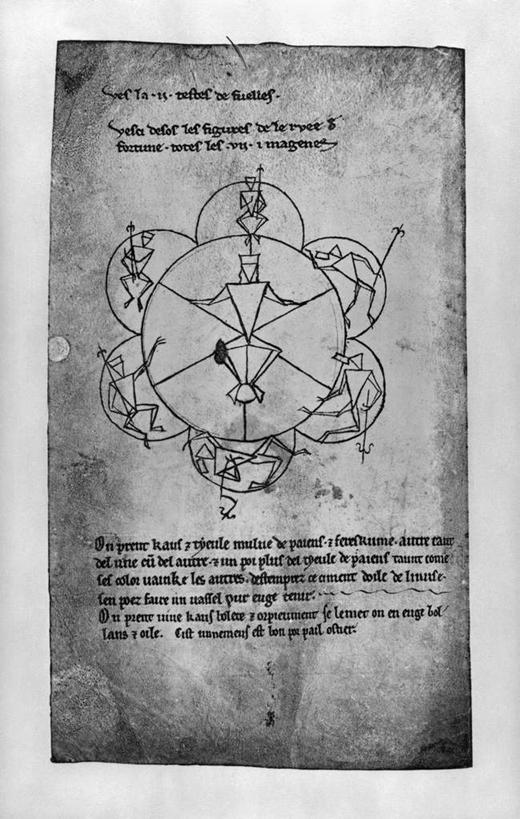 Ves la · ij · testes de fuelles ·
vesci desos les figures de le ruee
fortune · totes les · vij · imagenes
On prent kaus ⁊ tyeule mulue de paiens · ⁊ autretant
del une cū del autre · ⁊ un poi plus del tyeule de paiens taunt come
ses color vainke les autres · destemprez ce ciment doile de linuse ·
sen poez faire un vassel pur euge tenir ·
On prent vive kaus bolete ⁊ orpieument se le met on en euge bol
lans ⁊ oile · Cist unnemens est bon por pail ostier ·